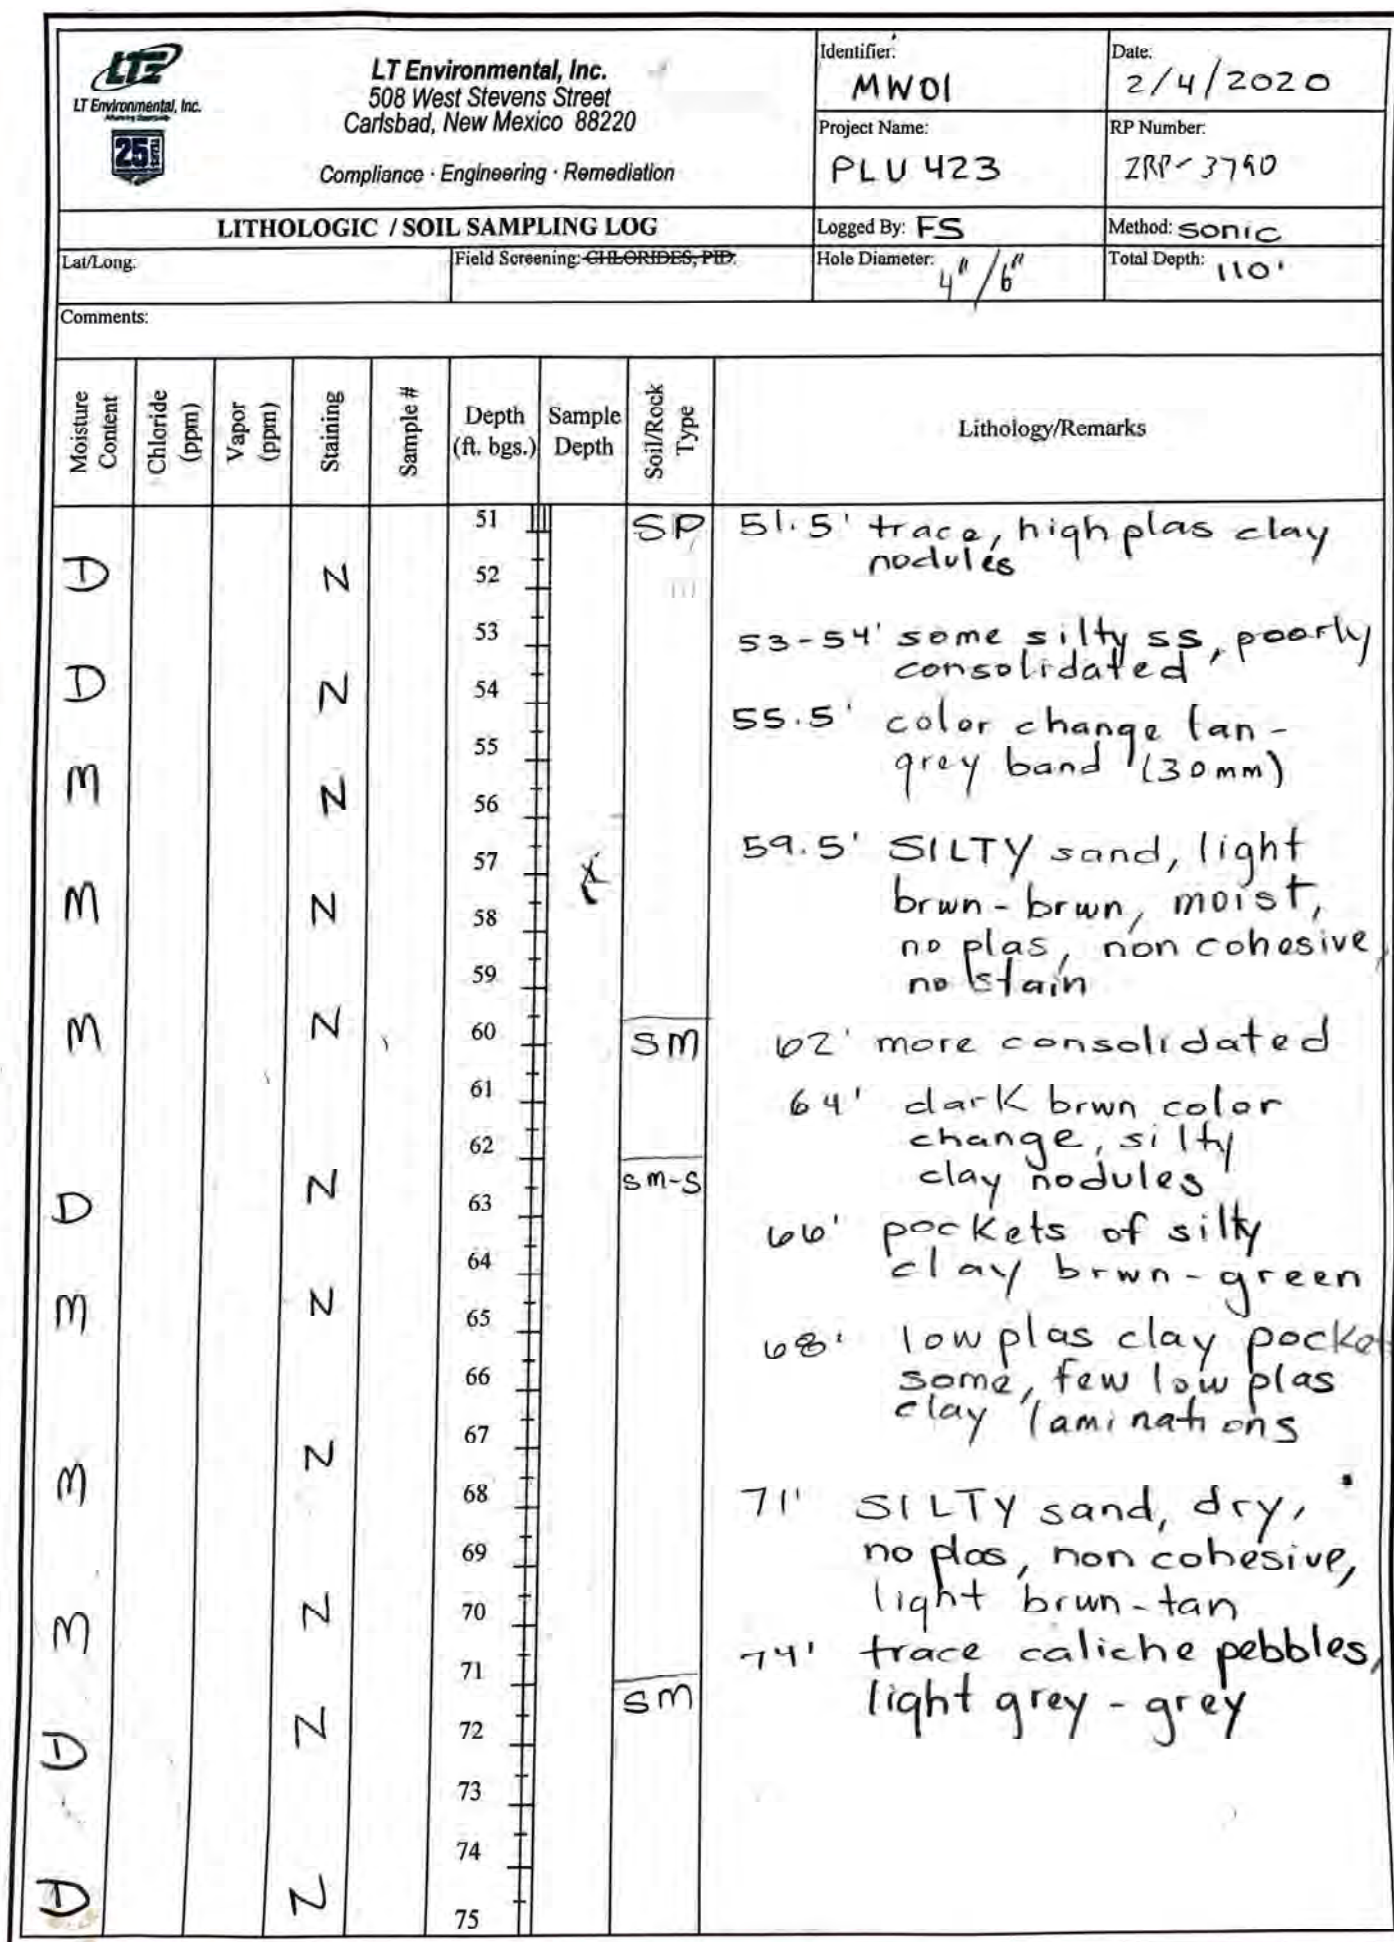 LTE
LT Environmental, Inc.
25
LT Environmental, Inc.
508 West Stevens Street
Carlsbad, New Mexico 88220
Compliance · Engineering · Remediation
Identifier:
MW01
Date:
2/4/2020
Project Name:
PLU 423
RP Number:
2RP-3790
LITHOLOGIC / SOIL SAMPLING LOG
Logged By: FS
Method: sonic
Lat/Long:
Field Screening: CHLORIDES, PID.
Hole Diameter: 4"/6"
Total Depth: 110'
Comments:
Moisture Content
Chloride (ppm)
Vapor (ppm)
Staining
Sample #
Depth (ft. bgs.)
Sample Depth
Soil/Rock Type
Lithology/Remarks
51 SP 51.5' trace, high plas clay
nodules
D N 52
53 53-54' some silty ss, poorly
consolidated
D N 54
55.5' color change tan-
55
grey band (30mm)
M N 56
57 59.5' SILTY sand, light
M N 58 brwn-brwn, moist,
no plas, non cohesive,
59
no stain
M N 60 SM 62' more consolidated
61 64' dark brwn color
change, silty
62
clay nodules
D N 63 SM-S
66' pockets of silty
64
clay brwn-green
M N 65
68' low plas clay pocket
66
some, few low plas
clay laminations
67
M N 68
71' SILTY sand, dry,
69
no plas, non cohesive,
light brwn-tan
M N 70
74' trace caliche pebbles,
71
light grey-grey
SM
D N 72
73
74
D N 75